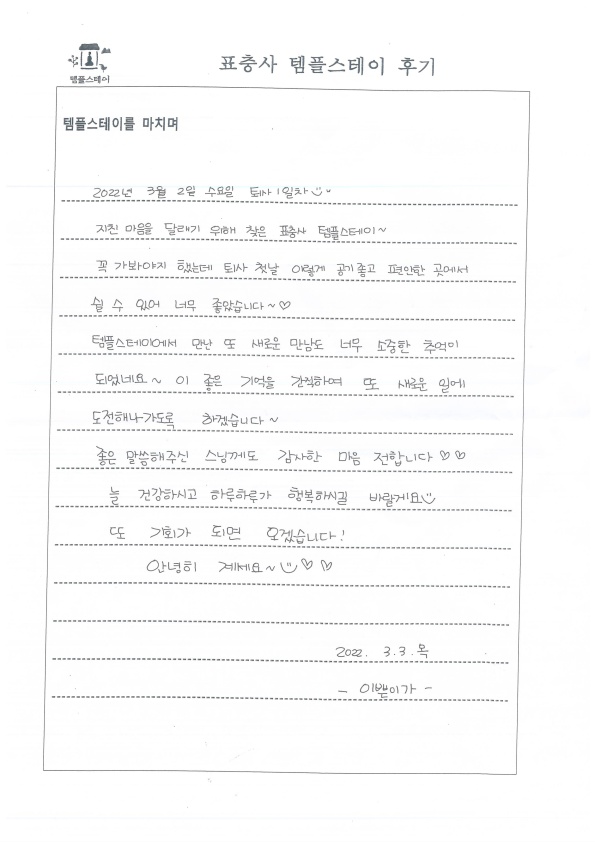 템플스테이
표충사 템플스테이 후기
템플스테이를 마치며
2022년 3월 2일 수요일 퇴사 1일차
지친 마음을 달래기 위해 찾은 표충사 템플스테이~
꼭 가봐야지 했는데 퇴사 첫날 이렇게 공기좋고 편안한 곳에서
쉴 수 있어 너무 좋았습니다~♡
템플스테이에서 만난 또 새로운 만남도 너무 소중한 추억이
되었네요~ 이 좋은 기억을 간직하여 또 새로운 일에
도전해나가도록 하겠습니다~
좋은 말씀해주신 스님께도 감사한 마음 전합니다♡♡
늘 건강하시고 하루하루가 행복하시길 바랄게요
또 기회가 되면 오겠습니다!
안녕히 계세요~ ♡♡
2022. 3.3.목
- 이쁜이가 -